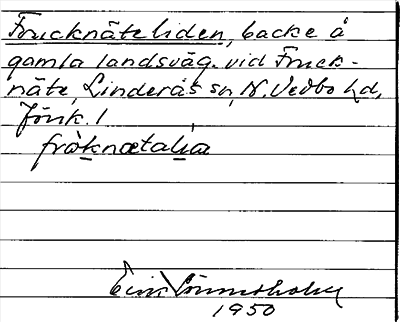 Frucknäteliden, backe å
gamla landsväg vid Fruck-
näte, Linderås sn, N. Vedbo hd,
Jönk. l
fråknætalia
1950